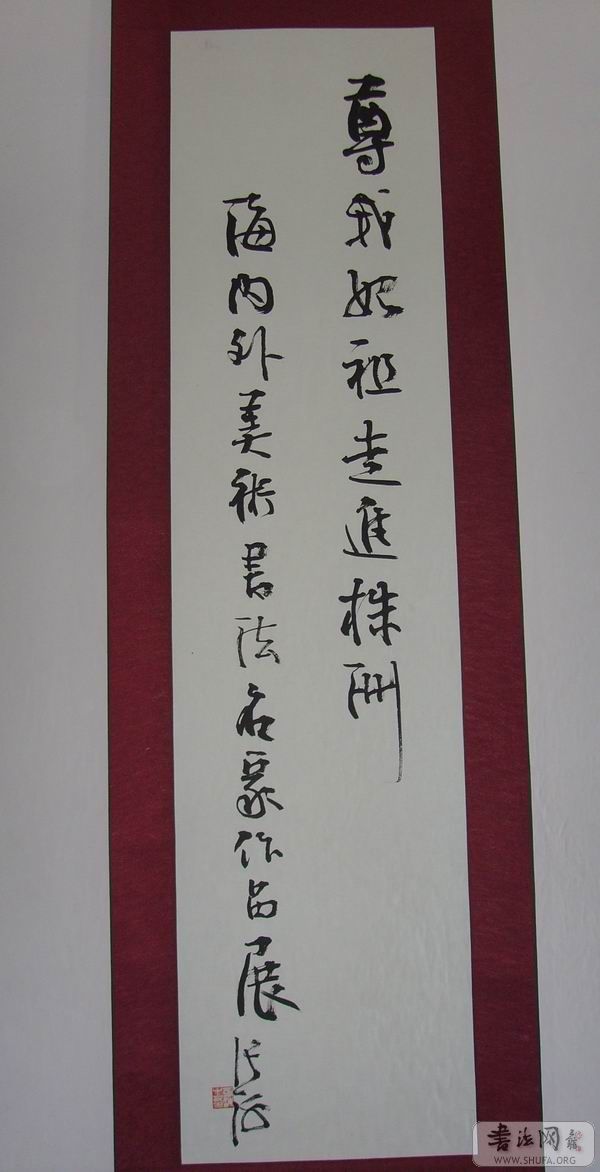 尊我始祖走進株洲
海内外美術書法名家作品展
書法网
WWW.SHUFA.ORG